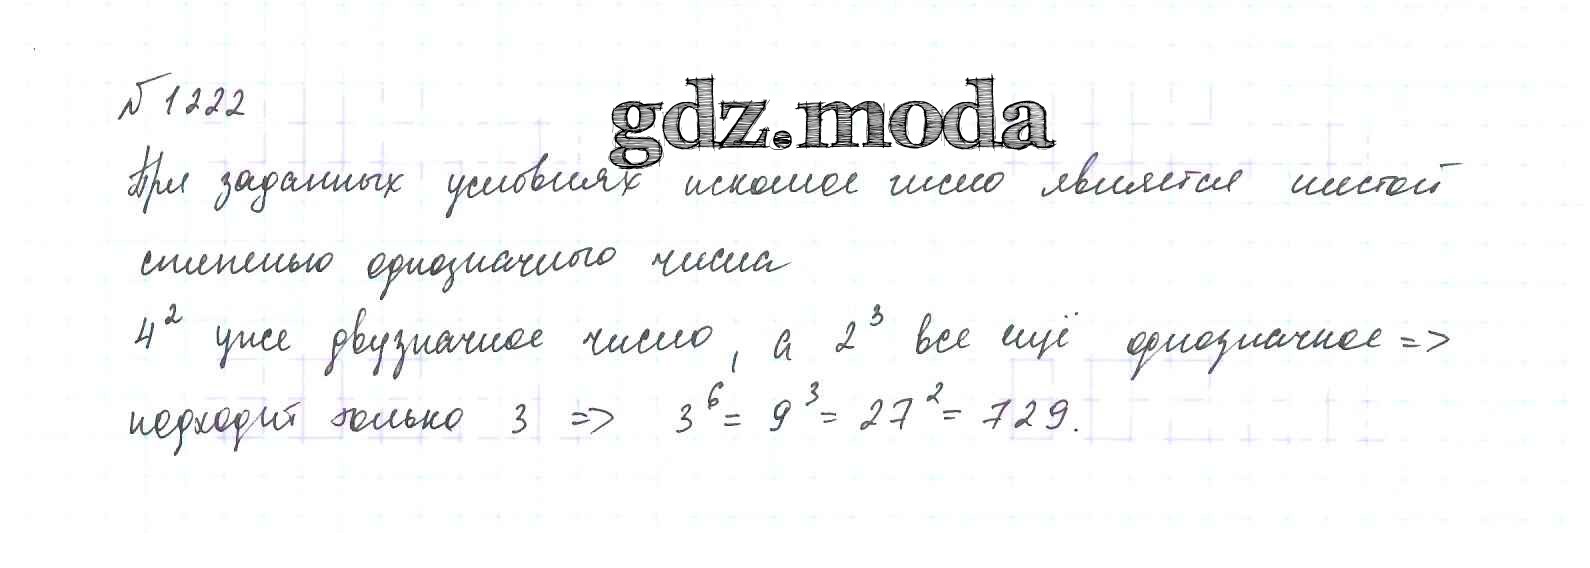 №1222
gdz.moda
При заданных условиях искомое число является шестой
степенью однозначного числа
4² уже двузначное число, а 2³ все ещё однозначное =>
подходит только 3 => 3⁶ = 9³ = 27² = 729.